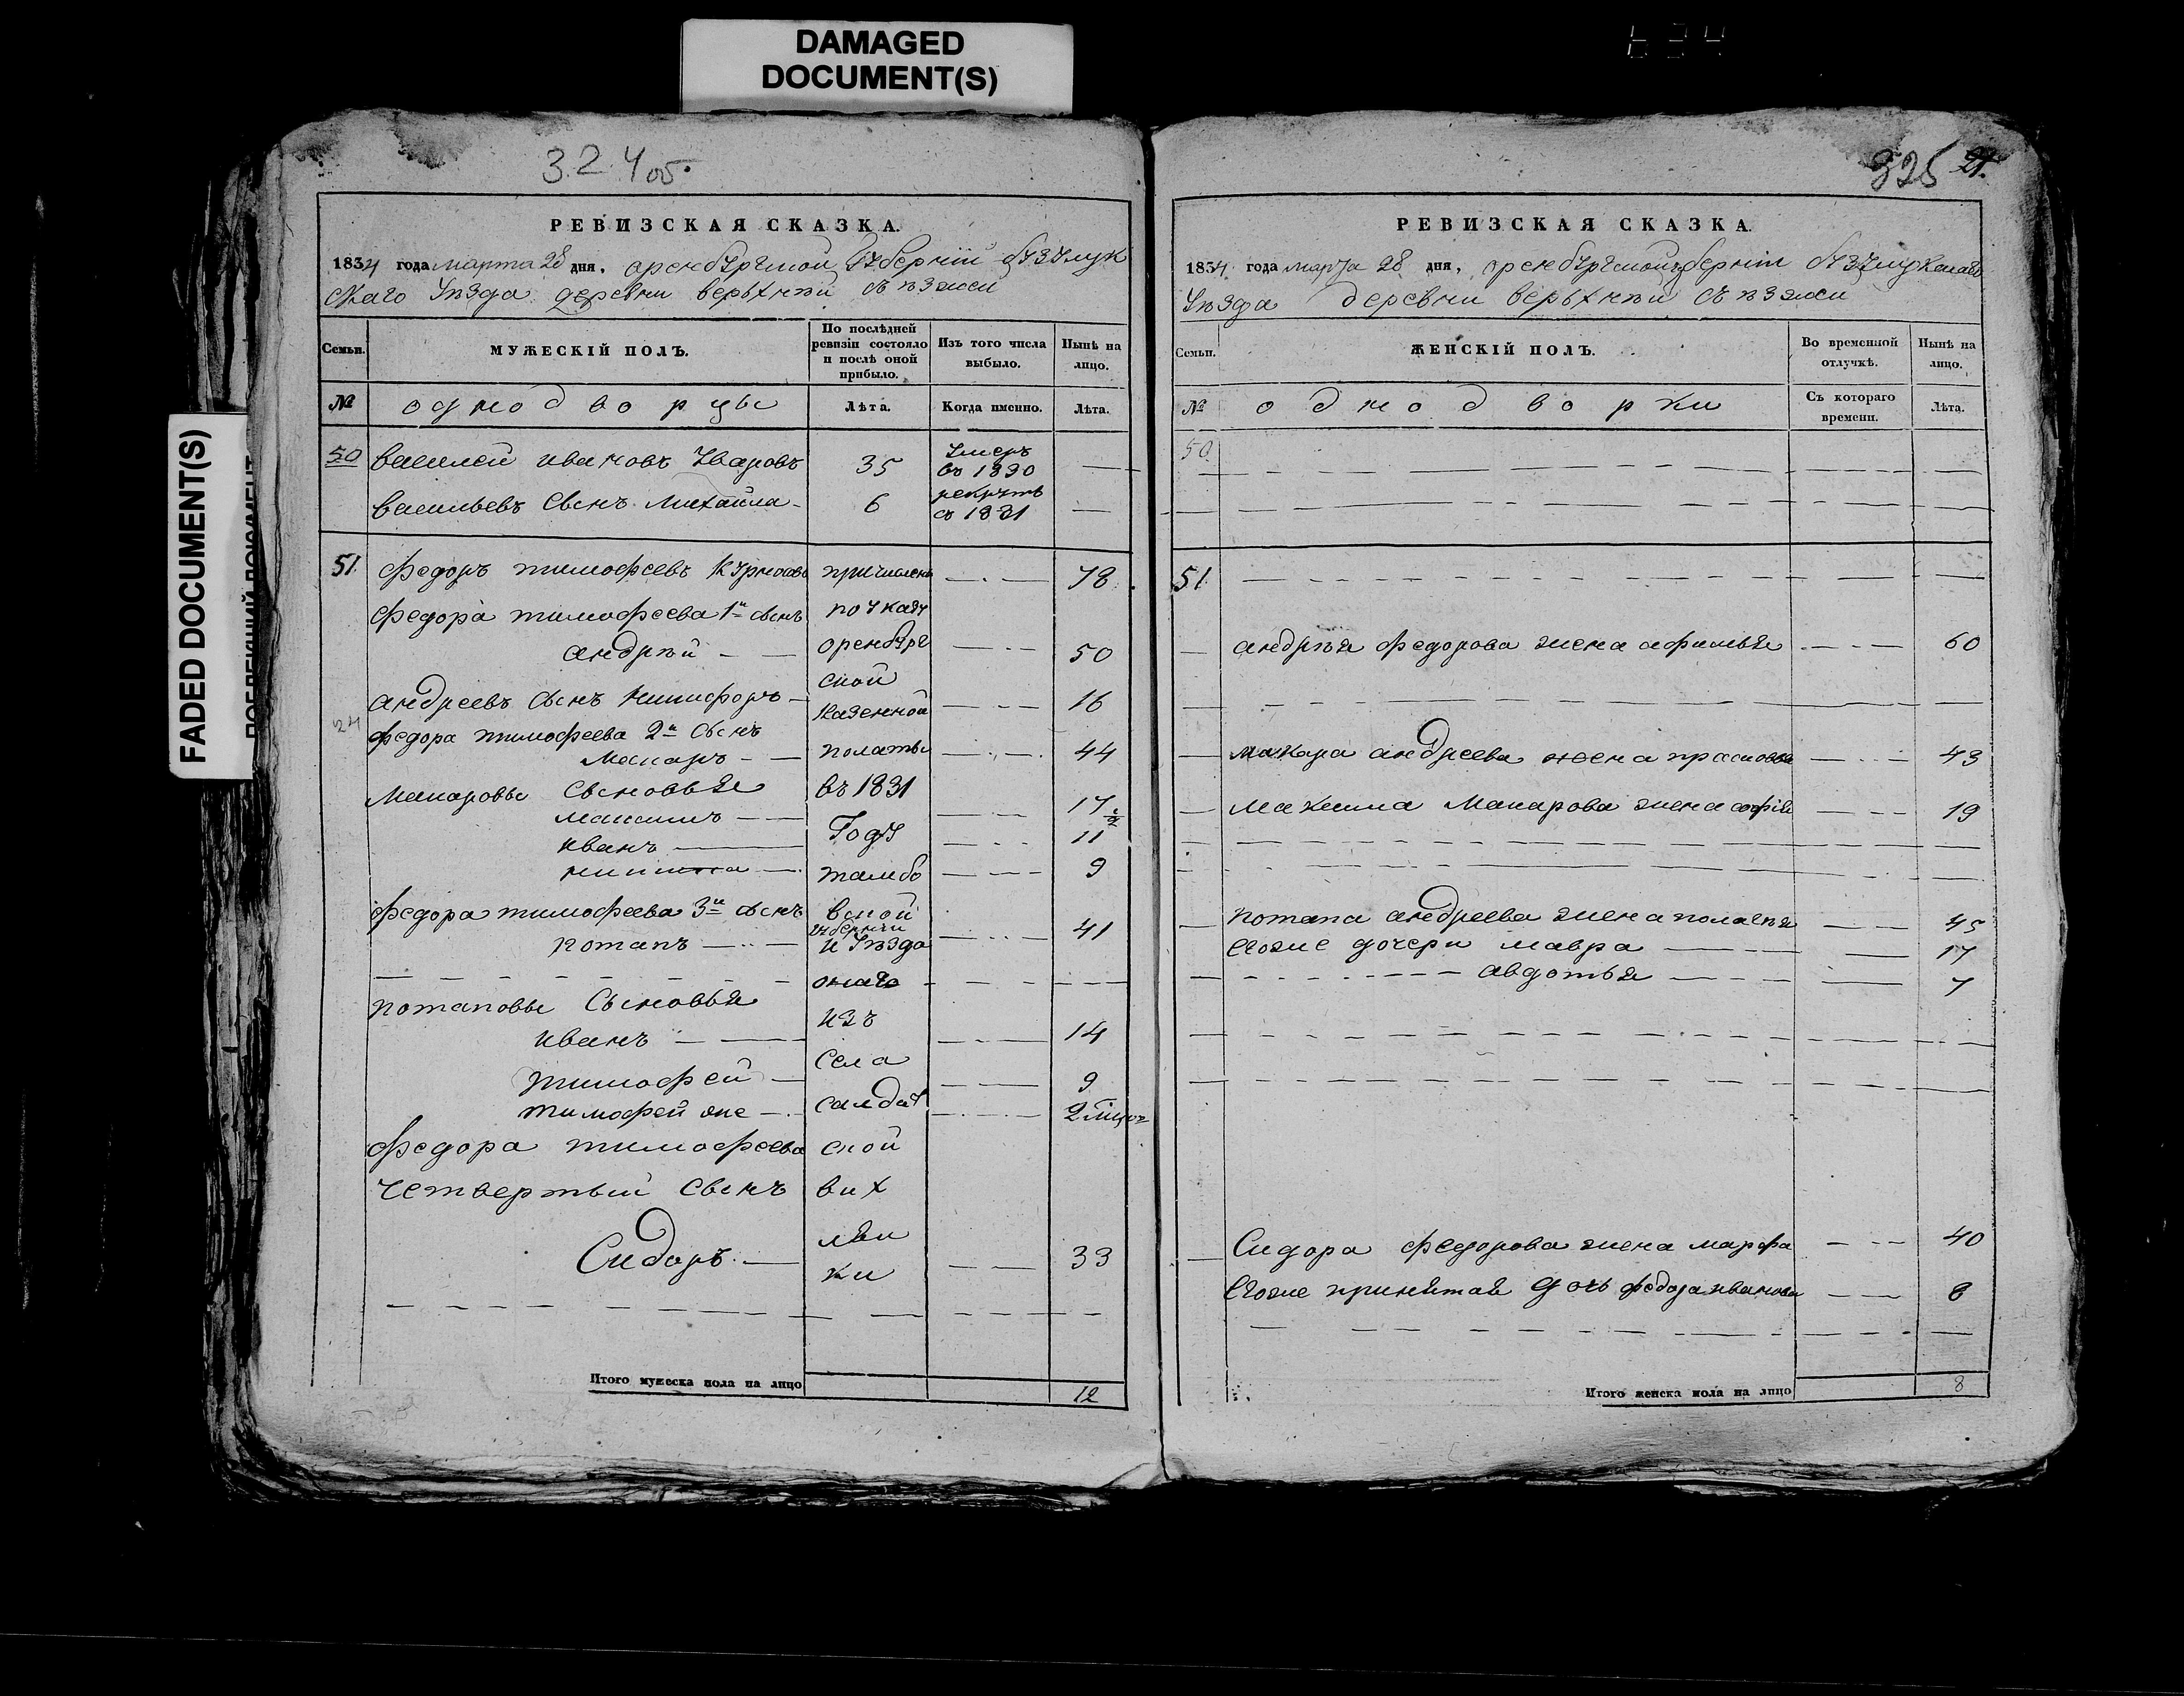 DAMAGED
DOCUMENT(S)
634
FADED DOCUMENT(S)
324 об.
РЕВИЗСКАЯ СКАЗКА.
1834 года марта 28 дня, оренбургской губернии бузулук
скаго уезда деревни верьхней съезжей
Семьи.
МУЖЕСКІЙ ПОЛЪ.
По послѣдней ревизіи состояло и послѣ оной прибыло.
Изъ того числа выбыло.
Нынѣ на лицо.
№ однодворцы
Лѣта.
Когда именно.
Лѣта.
50 василей ивановъ Уваровъ 35 Умеръ въ 1830
васильевъ сынъ михайла 6 рекрутъ съ 1831
51 федоръ тимофеевъ причислены 78
федора тимофеева 1й сынъ по указу
андрѣй оренбург 50
ской
андреевъ сынъ никифоръ казенной 16
24
федора тимофеева 2й сынъ
макаръ полаты 44
макаровы сыновья въ 1831
максимъ 17
иванъ Году 11
никита тамбо 9
федора тимофеева 3й сынъ вской
губернии
потапъ и уѣзда 41
онаго
потаповы сыновья изъ
иванъ 14
села
тимофей 9
тимофей же салдат 2
федора тимофеева ской
четвертый сынъ вих
ляи
Сидоръ 33
ки
Итого мужеска пола на лицо 12
325 21.
РЕВИЗСКАЯ СКАЗКА.
1834 года марта 28 дня, оренбургской губерніи бузулукскаго
уѣзда деревни верьхнѣй съѣзжей
Семьи.
ЖЕНСКІЙ ПОЛЪ.
Во временной отлучкѣ.
Нынѣ на лицо.
№ однодворки
Съ котораго времени.
Лѣта.
50
51
андрѣя федорова жена афимья 60
макара андреева жена прасковья 43
максима макарова жена софія 19
потапа андреева жена полагѣя 45
Егоже дочери мавра 17
авдотья 7
Сидора федорова жена марфа 40
Егоже принятая дочь федора иванова 8
Итого женска пола на лицо 8